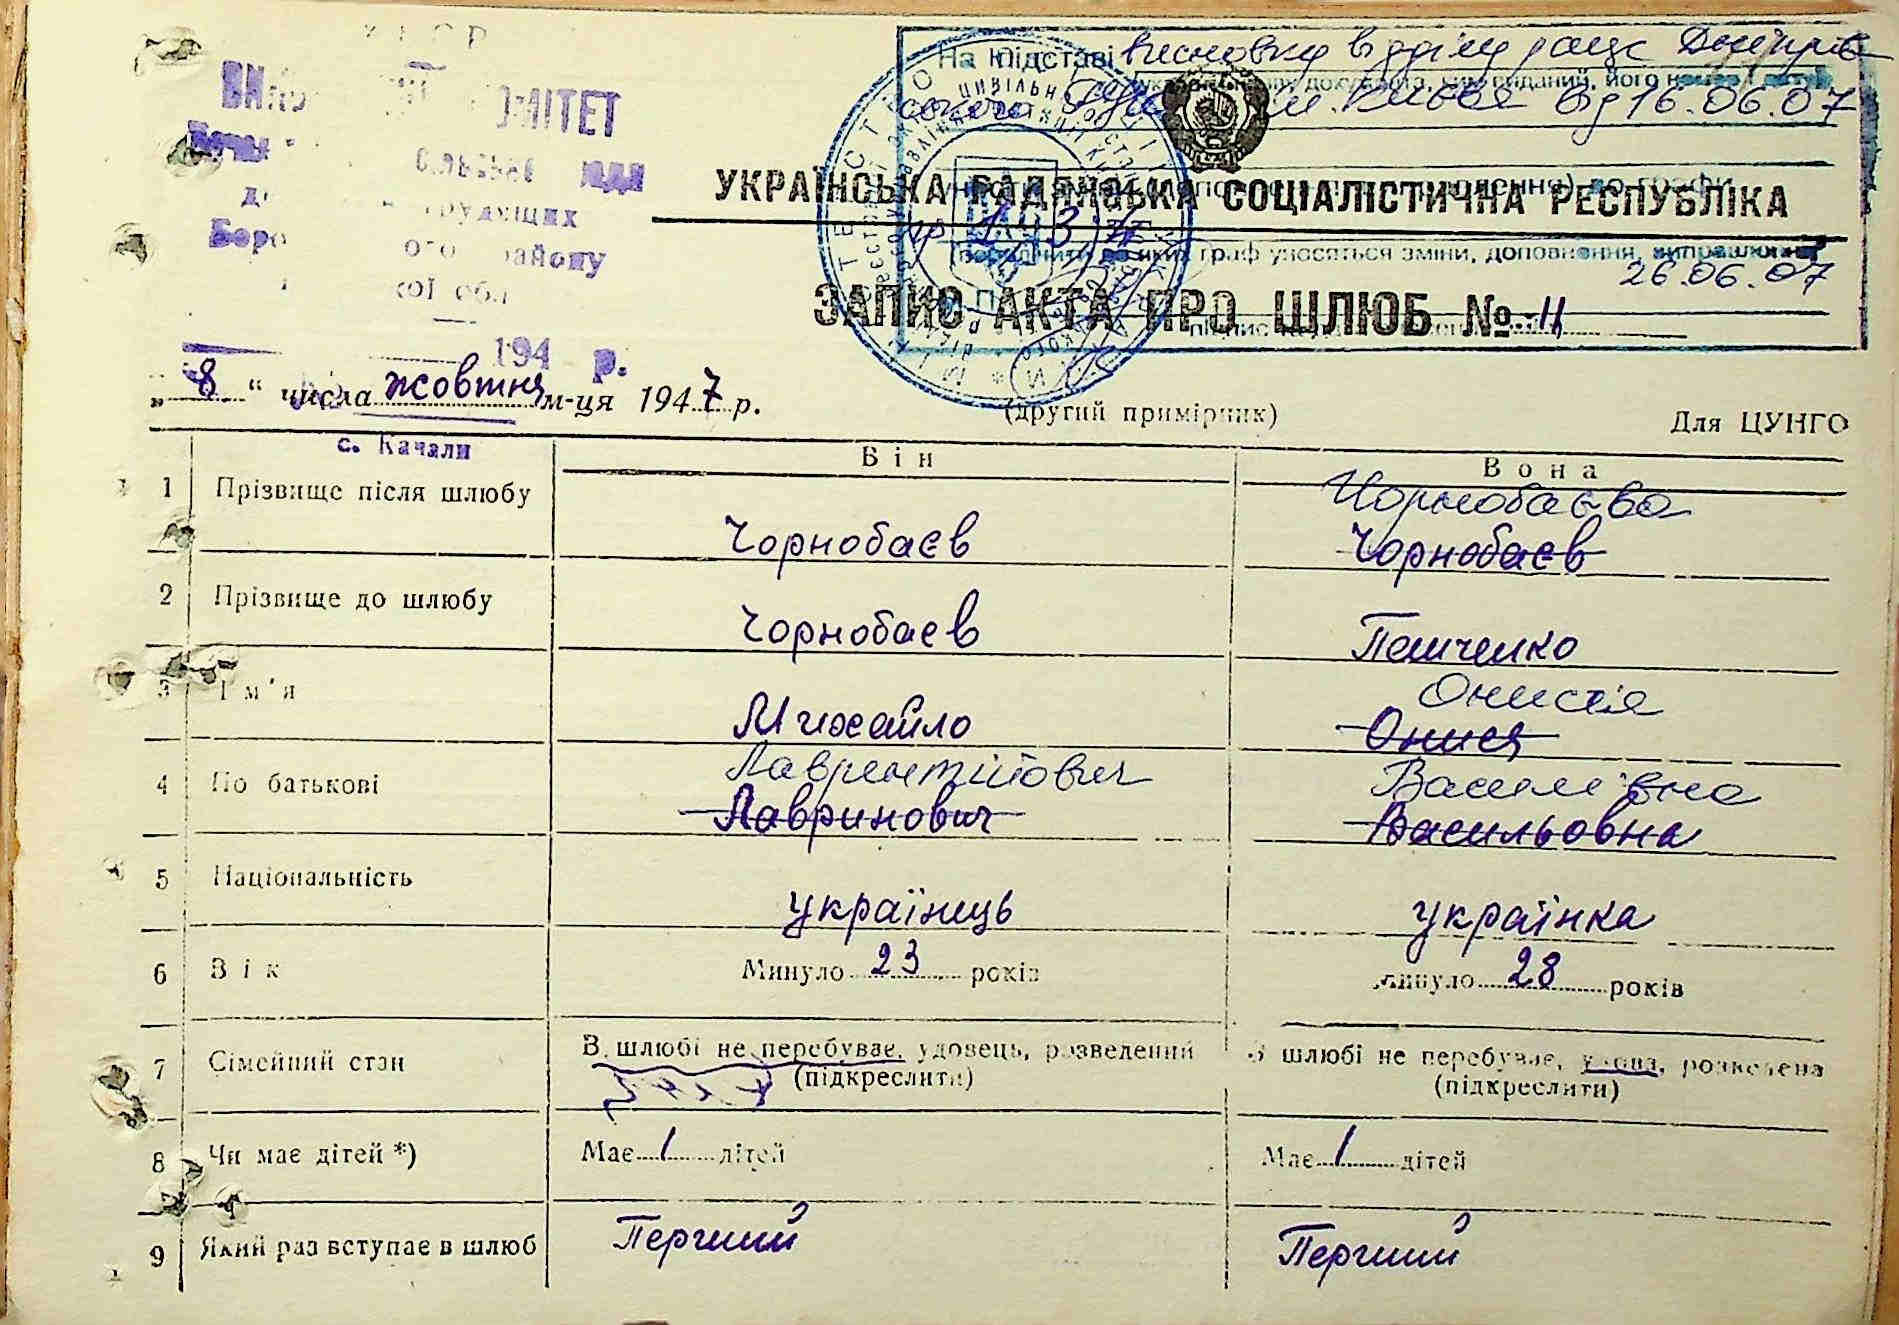 УРСР
ВИКО КОМІТЕТ
сільської ради
депутатів трудящих
Боро ого району
кої обл
194 р.
На підставі висновку відділу рацс Дніпров
ського РУЮ м. Києва від 16.06.07
гр 1, 3, 4
(порядчити до яких граф уносяться зміни, доповнення, виправлення)
26.06.07
УКРАЇНСЬКА РАДЯНСЬКА СОЦІАЛІСТИЧНА РЕСПУБЛІКА
ЗАПИС АКТА ПРО ШЛЮБ № 11
„ 8 “ числа жовтня м-ця 1947 р.
(другий примірник)
Для ЦУНГО
с. Качали
Він
Вона
1 Прізвище після шлюбу Чорнобаєв Чорнобаєва Чорнобаєв
2 Прізвище до шлюбу Чорнобаєв Пешченко
3 Ім'я Михайло Онисія Онися
4 По батькові Лаврентійович Лавринович Василівна Васильовна
5 Національність українець українка
6 Вік Минуло 23 років минуло 28 років
7 Сімейний стан В шлюбі не перебуває, удовець, розведений (підкреслити) В шлюбі не перебуває, удова, розведена (підкреслити)
8 Чи має дітей *) Має 1 дітей Має 1 дітей
9 Який раз вступає в шлюб Перший Перший